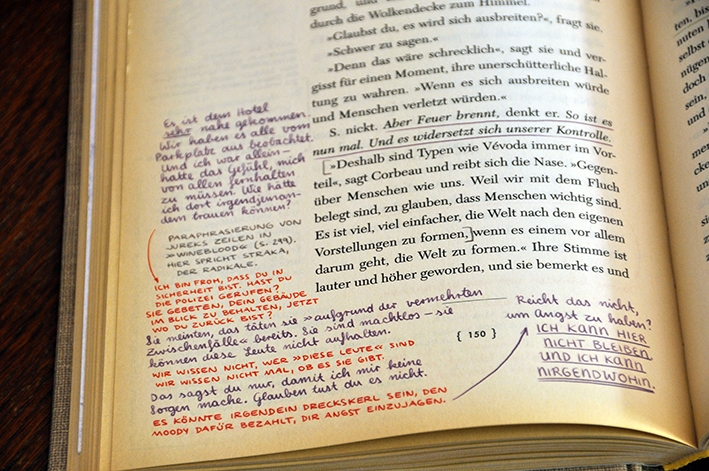 grund, und
durch die Wolkendecke zum Himmel.
»Glaubst du, es wird sich ausbreiten?«, fragt sie.
»Schwer zu sagen.«
»Denn das wäre schrecklich«, sagt sie und ver-
gisst für einen Moment, ihre unerschütterliche Hal-
tung zu wahren. »Wenn es sich ausbreiten würde
und Menschen verletzt würden.«
S. nickt. Aber Feuer brennt, denkt er. So ist es
nun mal. Und es widersetzt sich unserer Kontrolle.
»Deshalb sind Typen wie Vévoda immer im Vor-
teil«, sagt Corbeau und reibt sich die Nase. »Gegen-
über Menschen wie uns. Weil wir mit dem Fluch
belegt sind, zu glauben, dass Menschen wichtig sind.
Es ist viel, viel einfacher, die Welt nach den eigenen
Vorstellungen zu formen, wenn es einem vor allem
darum geht, die Welt zu formen.« Ihre Stimme ist
lauter und höher geworden, und sie bemerkt es und
{ 150 }
Es ist dem Hotel
sehr nahe gekommen.
Wir haben es alle vom
Parkplatz aus beobachtet.
Und ich war allein –
hatte das Gefühl, mich
von allen fernhalten
zu müssen. Wie hätte
ich dort irgendjeman-
dem trauen können?
PARAPHRASIERUNG VON
JUREKS ZEILEN IN
»WINEBLOOD« (S. 299).
HIER SPRICHT STRAKA,
DER RADIKALE.
ICH BIN FROH, DASS DU IN
SICHERHEIT BIST. HAST DU
DIE POLIZEI GERUFEN?
SIE GEBETEN, DEIN GEBÄUDE
IM BLICK ZU BEHALTEN, JETZT
WO DU ZURÜCK BIST?
Sie meinten, das täten sie »aufgrund der vermehrten
Zwischenfälle« bereits. Sie sind machtlos – sie
können diese Leute nicht aufhalten.
WIR WISSEN NICHT, WER »DIESE LEUTE« SIND
WIR WISSEN NICHT MAL, OB ES SIE GIBT.
Das sagst du nur, damit ich mir keine
Sorgen mache. Glauben tust du es nicht.
ES KÖNNTE IRGENDEIN DRECKSKERL SEIN, DEN
MOODY DAFÜR BEZAHLT, DIR ANGST EINZUJAGEN.
Reicht das nicht,
um Angst zu haben?
ICH KANN HIER
NICHT BLEIBEN
UND ICH KANN
NIRGENDWOHIN.
ten, bis
nuten
selbst
nügen
doch
sein,
und